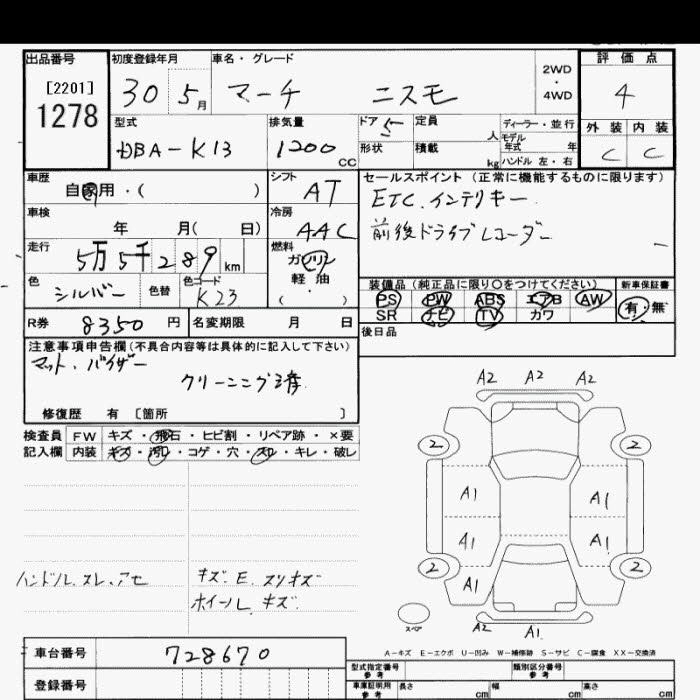 出品番号 初度登録年月 車名・グレード 評価点
[2201]
1278
30 5月 マーチ ニスモ 2WD・4WD 4
型式 排気量 ドア 5 定員 人 ディーラー・並行 外装 内装
モデル年式 年式
DBA-K13 1200 CC 形状 積載 kg ハンドル 左・右 C C
車歴 シフト セールスポイント (正常に機能するものに限ります)
自家用・( ) AT ETC.インテリキー
車検 冷房 前後ドライブレコーダー
年 月( 日) AAC
走行 燃料
5万5千289km ガソリン
軽油
( ・ )
色 シルバー 色替 色コード K23
装備品 (純正品に限り○をつけてください) 新車保証書
PS PW ABS エアB AW 有・無
SR ナビ TV カワ
R券 8350 円 名変期限 月 日 後日品
注意事項申告欄(不具合内容等は具体的に記入して下さい)
マット.バイザー
クリーニング済.
修復歴 有 [箇所 ]
検査員 FW キズ・飛石・ヒビ割・リペア跡・×要
記入欄 内装 キズ・汚レ・コゲ・穴・スレ・キレ・破レ
A2 A2 A2
2 2
A1 A1
A1 A1
2 2
A1 A1
ハンドル.スレ.アセ
キズ.E.スリキズ
ホイール.キズ.
スペア A2 A1
A-キズ E-エクボ U-凹み W-補修跡 S-サビ C-腐食 XX-交換済
車台番号 728670
型式指定番号 参考 類別区分番号 参考
登録番号 車庫証明用 参考 長さ cm 幅 cm 高さ cm